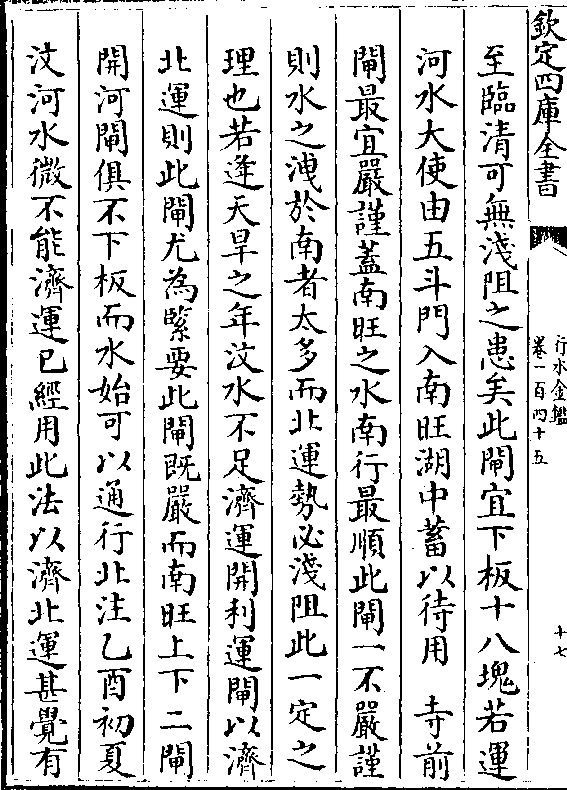 欽定四庫全書
行水金鑑
卷一百四十五
十七
至臨清可無淺阻之患矣此閘宜下板十八塊若運
河水大使由五斗門入南旺湖中蓄以待用　寺前
閘最宜嚴謹蓋南旺之水南行最順此閘一不嚴謹
則水之洩於南者太多而北運勢必淺阻此一定之
理也若逢天旱之年汶水不足濟運開利運閘以濟
北運則此閘尤為緊要此閘既嚴而南旺上下二閘
開河閘俱不下板而水始可以通行北注乙酉初夏
汶河水微不能濟運已經用此法以濟北運甚覺有